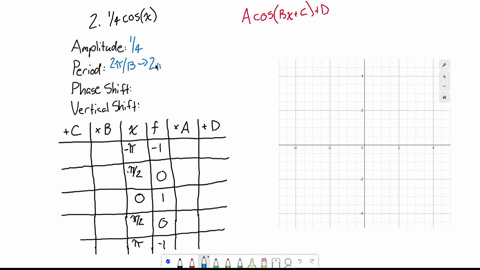 2. 1/4 cos(x)
A cos(Bx+C)+D
Amplitude: 1/4
Period: 2π/B → 2π
Phase Shift:
Vertical Shift:
+C ×B x f ×A +D
-π -1
-π/2 0
0 1
π/2 0
π -1